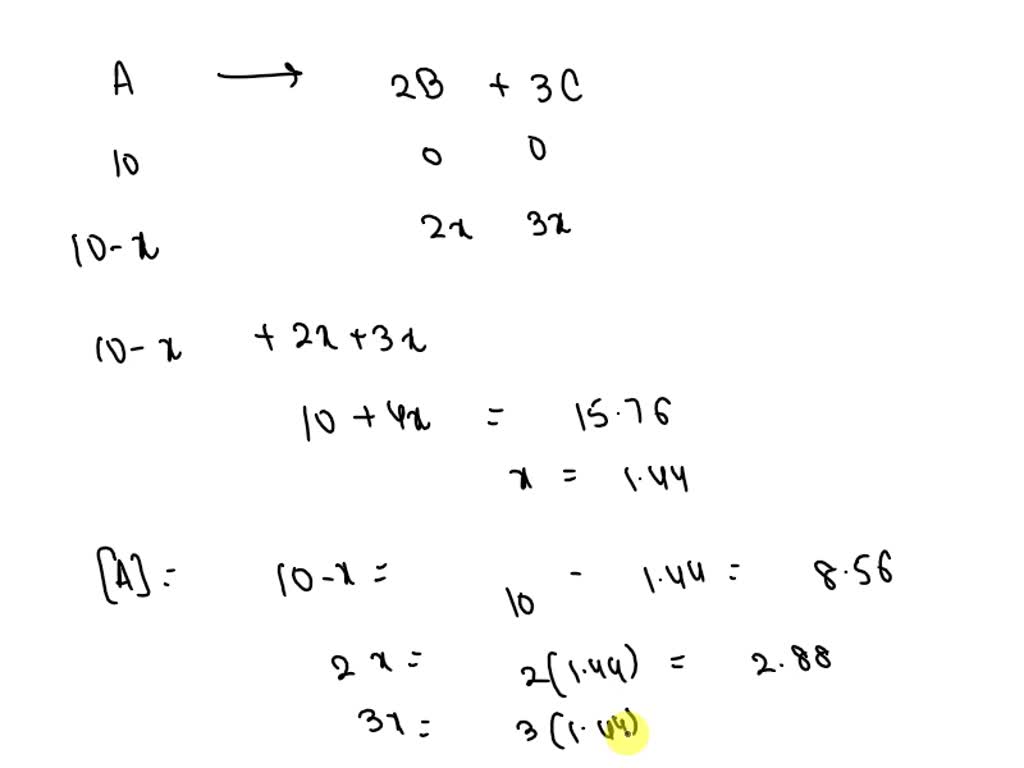 A → 2B + 3C
10 0 0
10-x 2x 3x
10-x + 2x + 3x
10 + 4x = 15.76
x = 1.44
[A] = 10-x = 10 - 1.44 = 8.56
2x = 2(1.44) = 2.88
3x = 3(1.44)